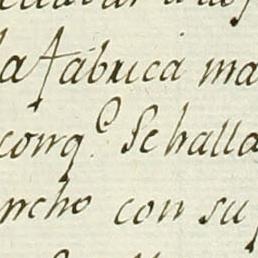 la fábrica ma
conq.e Se halla
ncho con su